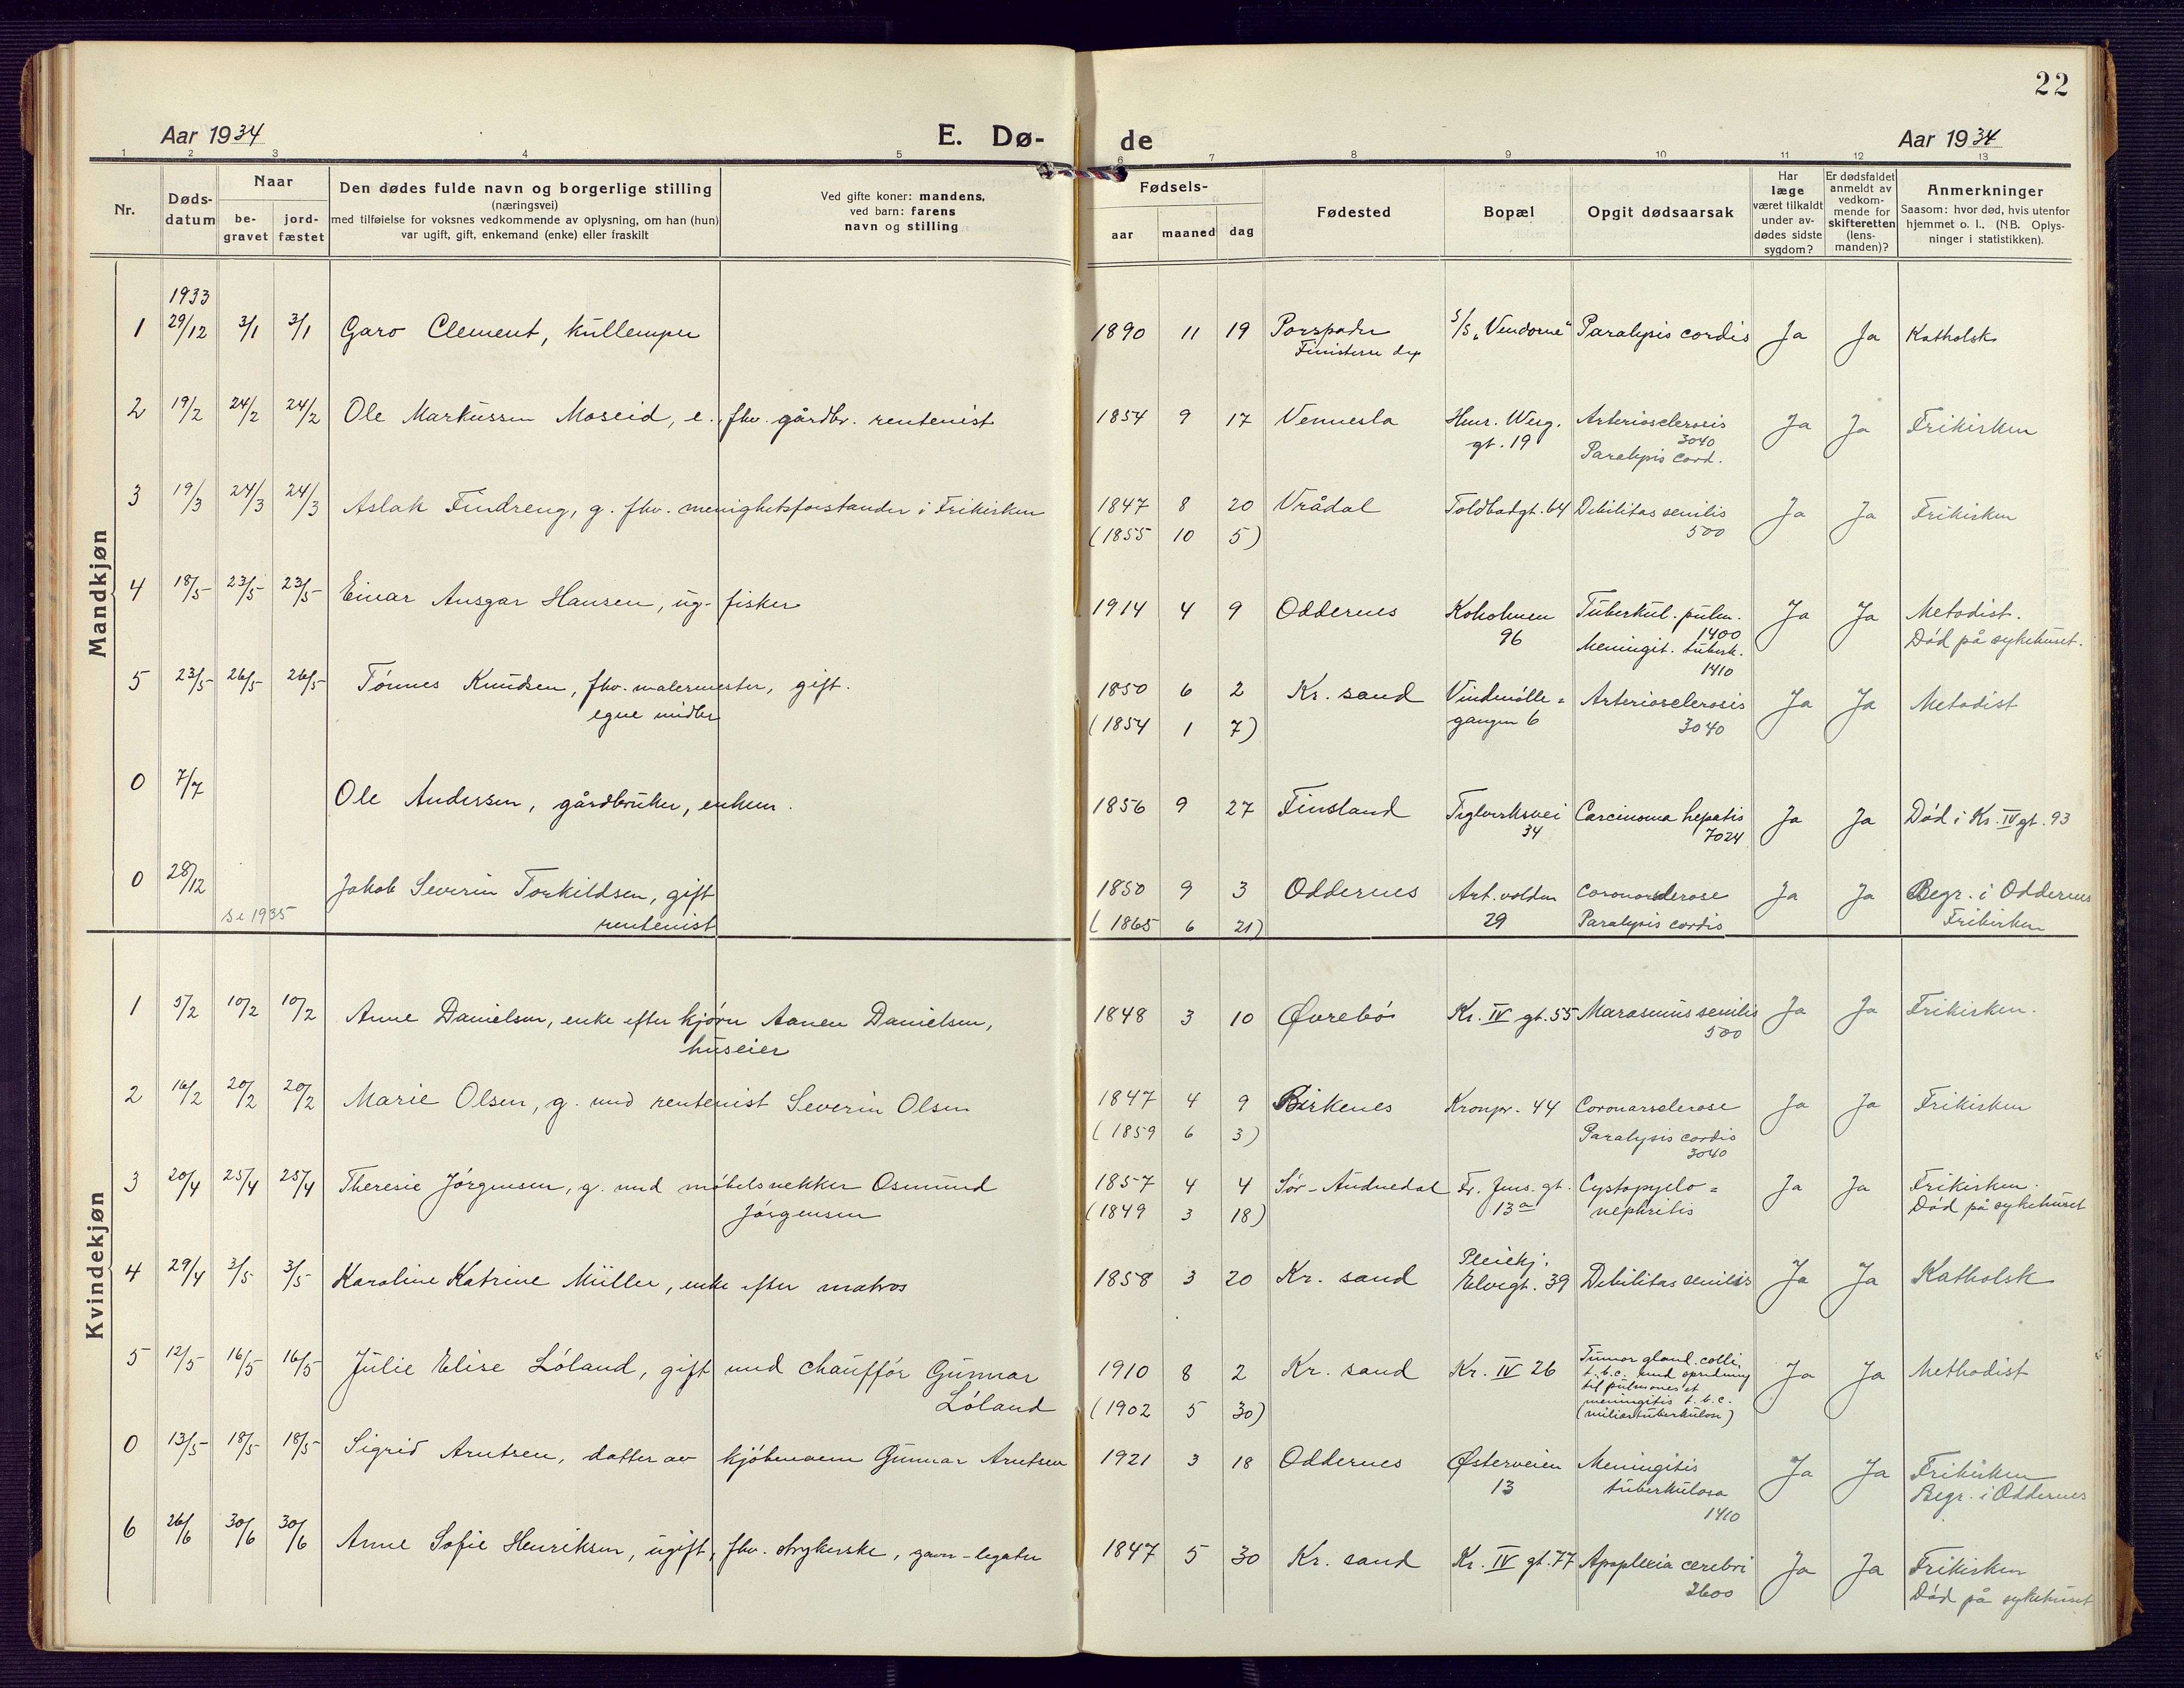 22
Aar 1934 E. Dø- de Aar 1934
1 2 3 4 5 6 7 8 9 10 11 12 13
Nr. Døds-datum Naar be-gravet jord-fæstet Den dødes fulde navn og borgerlige stilling (næringsvei) med tilføielse for voksnes vedkommende av oplysning, om han (hun) var ugift, gift, enkemand (enke) eller fraskilt Ved gifte koner: mandens, ved barn: farens navn og stilling Fødsels- aar maaned dag Fødested Bopæl Opgit dødsaarsak Har læge været tilkaldt under av-dødes sidste sygdom? Er dødsfaldet anmeldt av vedkom-mende for skifteretten (lens-manden)? Anmerkninger Saasom: hvor død, hvis utenfor hjemmet o. l.. (NB. Oplys-ninger i statistikken).
Mandkjøn
1933
1 29/12 3/1 3/1 Garo Clement, kullemper 1890 11 19 Porspoder S/S „Vendome“ Paralysis cordis Ja Ja Katholsk
Finisterre dep
2 19/2 24/2 24/2 Ole Markussen Moseid, e., fhv. gårdbr. rentenist 1854 9 17 Vennesla Henr. Werg. Arteriosclerosis Ja Ja Frikirken
gt. 19 3040
Paralysis cord.
3 19/3 24/3 24/3 Aslak Findreng, g. fhv. menighetsforstander i Frikirken 1847 8 20 Vrådal Toldbodgt. 64 Debilitas senilis Ja Ja Frikirken
(1855 10 5) 500
4 18/5 23/5 23/5 Einar Ansgar Hansen, ug. fisker 1914 4 9 Oddernes Kokolmen Tuberkul. pulm. Ja Ja Metodist.
96 1400 Død på sykehuset.
Meningit. tuberk.
1410
5 23/5 26/5 26/5 Tønnes Knudsen, fhv. malermester, gift. 1850 6 2 Kr. sand Vindmølle= Arteriosclerosis Ja Ja Metodist
egne midler (1854 1 7) gangen 6 3040
0 7/7 Ole Andersen, gårdbruker, enkem. 1856 9 27 Finsland Teglverksvei Carcinoma hepatis Ja Ja Død i Kr. IV gt. 93
34 7024
0 28/12 Jakob Severin Torkildsen, gift 1850 9 3 Oddernes Art. volden Coronarsclerose Ja Ja Begr. i Oddernes
Se 1935 rentenist (1865 6 21) 29 Paralysis cordis Frikirken
Kvindekjøn
1 5/2 10/2 10/2 Anne Danielsen, enke efter kjørn Aanen Danielsen, 1848 3 10 Øvrebø Kr. IV gt. 55 Marasmus senilis Ja Ja Frikirken.
huseier 500
2 16/2 20/2 20/2 Marie Olsen, g. med rentenist Severin Olsen 1847 4 9 Birkenes Kronpr. 44 Coronarsclerose Ja Ja Frikirken
(1859 6 3) Paralysis cordis
3040
3 20/4 25/4 25/4 Theresie Jørgensen, g. med møbelsnekker Osmund 1857 4 4 Sør-Audnedal Fr. Jms. gt. Cystopyelo= Ja Ja Frikirken.
Jørgensen (1849 3 18) 13a nephritis Død på sykehuset
4 29/4 3/5 3/5 Karoline Katrine Müller, enke efter matros 1858 3 20 Kr. sand Pleiehj. Elvegt. 39 Debilitas senilis Ja Ja Katholsk
5 12/5 16/5 16/5 Julie Elise Løland, gift med chauffør Gunnar 1910 8 2 Kr. sand Kr. IV 26 Tumor gland. colli, Ja Ja Methodist
Løland (1902 5 30) t.b.c. med spredning
til pulmones et
meningitis t.b.c.
(miliærtuberkulose)
0 13/5 18/5 18/5 Sigrid Arntsen, datter av kjøbmann Gunnar Arntsen 1921 3 18 Oddernes Østerveien Meningitis Ja Ja Frikirken
13 tuberkulosa Begr. i Oddernes
1410
6 26/6 30/6 30/6 Anne Sofie Henriksen, ugift, fhv. strykerske, gam-legater 1847 5 30 Kr. sand Kr. IV gt. 77 Apoplexia cerebri Ja Ja Frikirken
2600 Død på sykehuset